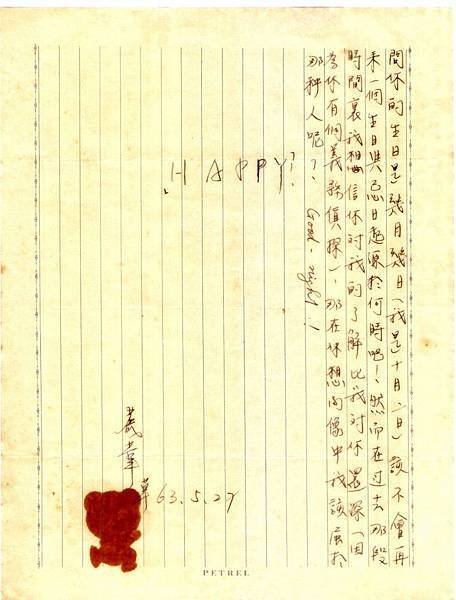 問你的生日是幾月幾日(我是十月二日)該不會再
来一個生日與忌日起源於何時吧!然而在过去那段
時間裏我想信你对我的了解比我对你還深(因
為你有個義務偵探),那在你想像中我該屬於
那种人呢?? Good-night!!
HAPPY?
義華
草 63.5.27
PETREL